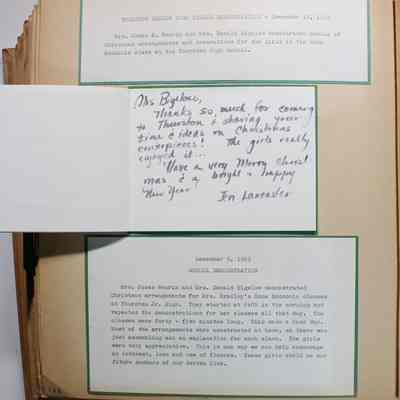 THURSTON SENIOR HIGH SCHOOL DEMONSTRATION - December
Mrs. James R. Mearis and Mrs. Donald Bigelow demonstrated making of
Christmas arrangements and decorations for the girls in the Home
Economic class at the Thurston High School.
Ms Bigelow,
Thanks so much for coming
to Thurston & sharing your
time & ideas on Christmas
centerpieces! The girls really
enjoyed it...
Have a very Merry Christ
mas & a bright & happy
New Year
December 5,
SCHOOL DEMONSTRATION
Mrs. James Mearis and Mrs. Donald Bigelow demonstrated
Christmas arrangements for Mrs. Bradley's Home Economic classes
at Thurston Jr. High. They started at in the morning and
repeated the demonstrations for her classes all that day. The
classes were forty - five minutes long. This made a full day.
Most of the arrangements were constructed at home, so there was
just assembling and an explanation for each class. The girls
were very appreciative. This is one way we can help encourage
an interest, love and use of flowers. These girls could be our
future members of our garden club.